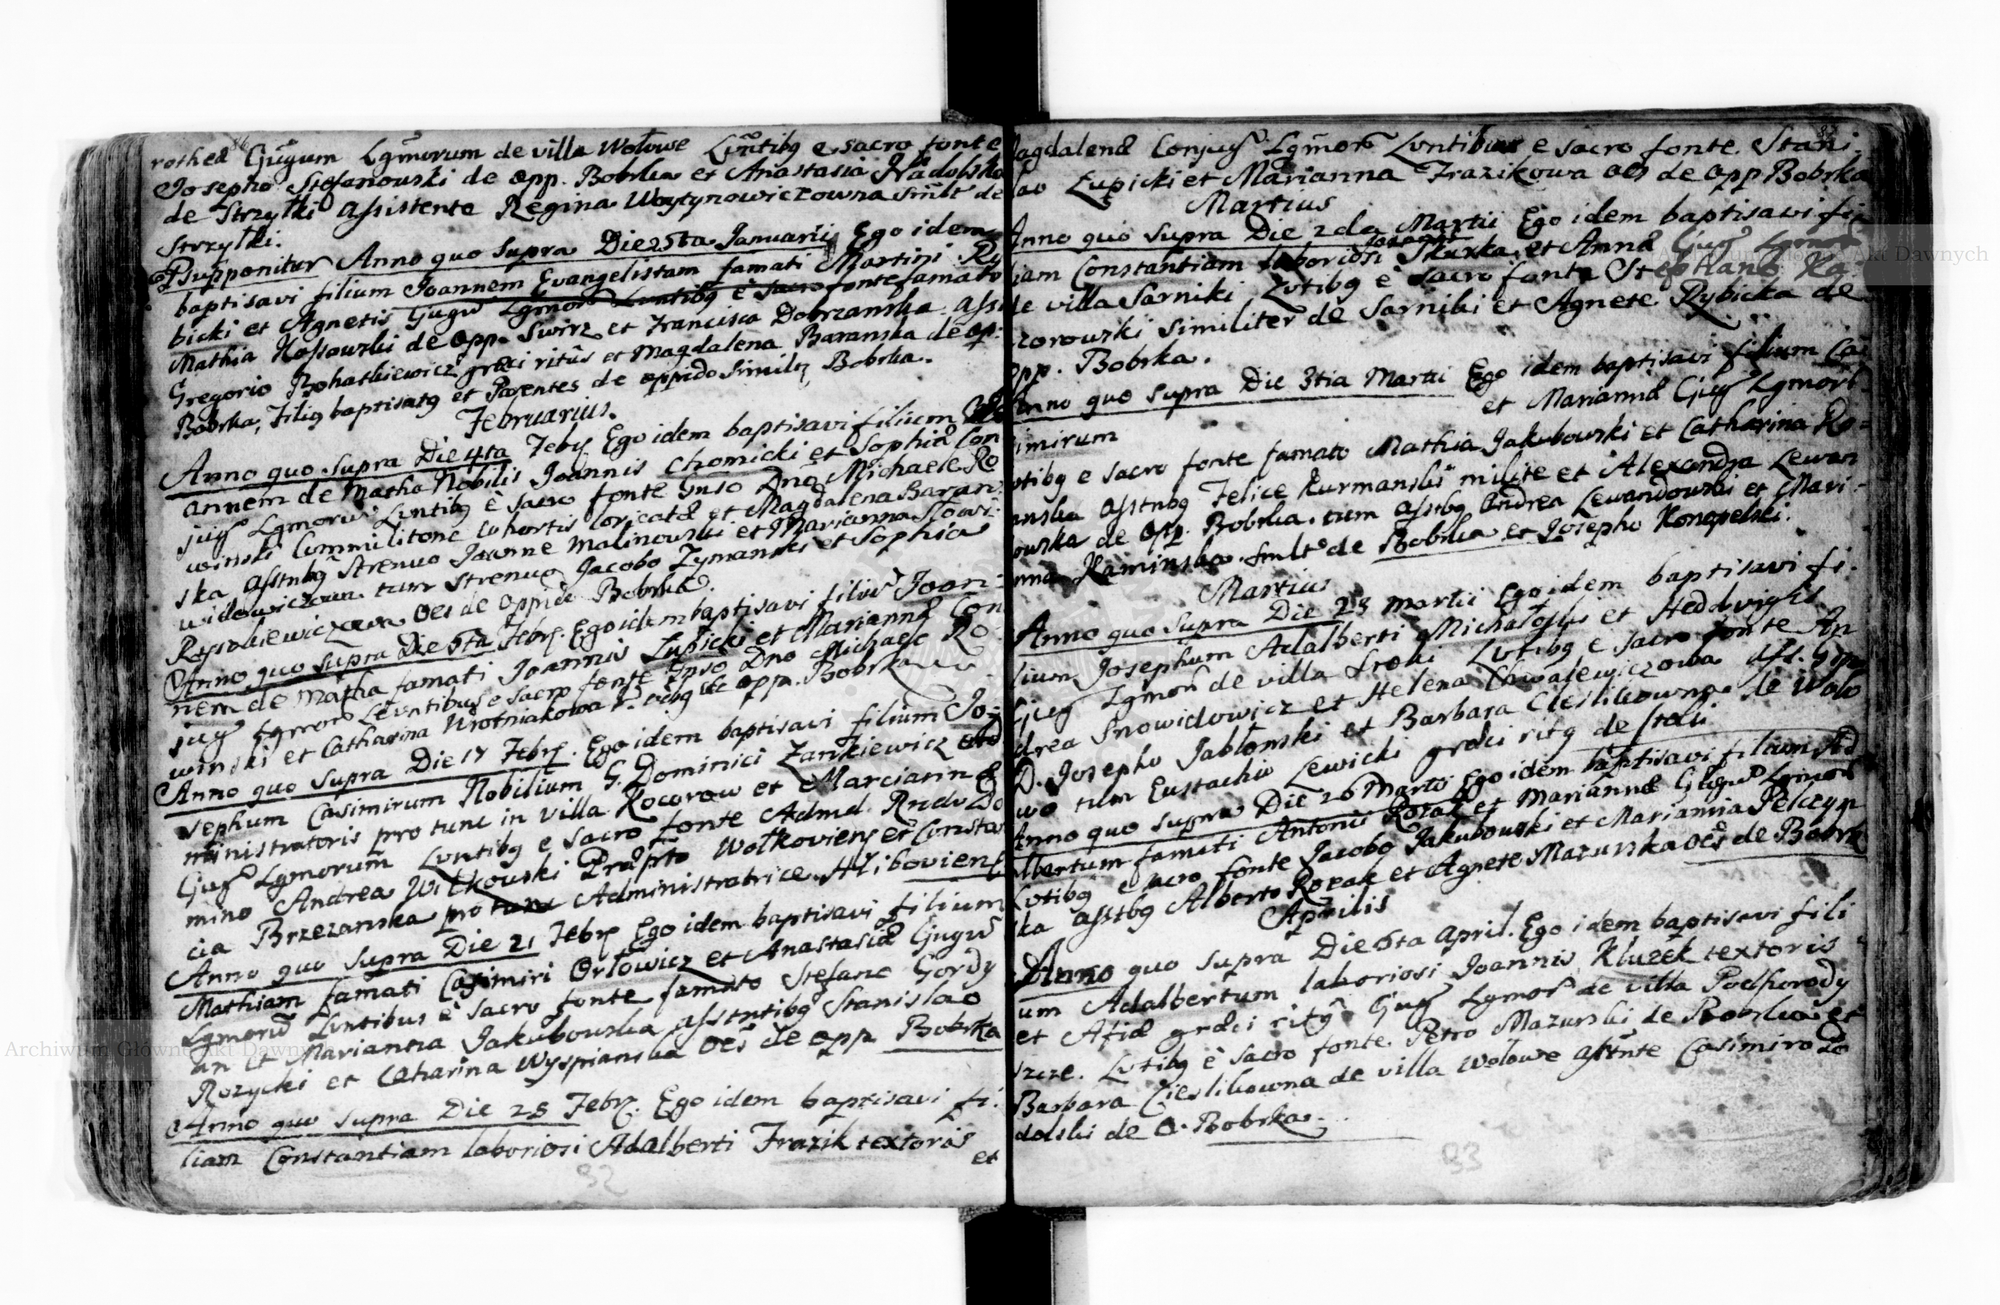 86
rothea Gugum Lgmorum de villa Wolowe Lvntibg e sacro fonte
Josepho Stefanowski de opp. Bobrka et Anastasia Nadolska
de Strzylki Assistente Regina Woytynowiczowna Smlr de
Strzylki.
Psupponitur Anno quo supra Die 25ta Januarij Ego idem
baptisavi filium Joannem Evangelistam famati Martini Ry
bicki et Agnetis Gugu Lgmor Lvntibg è sacro fonte famato
Mathia Kossowski de opp. Swirz et Francisca Dobrzanska. assi
Gregorio Bohatkiewicz græci ritûs et Magdalena Baranska de op:
Bobrka, Filig baptisatg et Parentes de oppido similr Bobrka.
Februarius.
Anno quo supra Die 4ta Febr Ego idem baptisavi filium Jo
annem de Matha Nobilis Joannis Chomicki et Sophiæ Con
jug Lgmorum Lvntibg è sacro fonte Gnso Dno Michaele Ro
winski Commilitone Cohortis loricatæ et Magdalena Baran
ska Asstnbg Strenuo Joanne Malinowski et Marianna Slowi:
widowiczowa tum Strenuo Jacobo Zymanski et Sophia
Ryszkiewiczowa oes de oppido Bobrka.
Anno quo supra Die 6ta Febr. Ego idem baptisavi filiu Joan-
nem de Matha famati Joannis Lupicki et Mariannæ Con
jug Lgmor Levntibus e sacro fonte Gnso Dno Michaele Ro-
winski et Catharina Wrotniakowa de opp. Bobrka
Anno quo supra Die 17 Febr. Ego idem baptisavi filium Jo-
sephum Casimirum Nobilium G. Dominici Zankiewicz Ad
ministratoris pro tunc in villa Kocorow et Marciannæ
Gug Lgmorum Lvntibg e sacro fonte Admd. Rndo Do
mino Andrea Witkowski Præpto Wolkoviens et Consta
cia Brzezanska pro tunc Administratrice Hliboviens
Anno quo supra Die 21 Febr Ego idem baptisavi filium
Mathiam famati Casimiri Orlowicz et Anastasiæ Gjugu
Lgmoru Lvntibus è sacro fonte famato Stefano Gordy
an et Marianna Jakubowska asstntibg Stanislao
Rozycki et Catharina Wyspianska oes de opp Bobrka
Anno quo supra Die 28 Febr. Ego idem baptisavi fi-
liam Constantiam laboriosi Adalberti Frazik textoris
et
92
87
Magdalenæ Conjug Lgmor Lvntibus e sacro fonte. Stani-
lao Lupicki et Marianna Frazikowa oes de opp Bobrka
Martius
Anno quo supra Die 2da Martii Ego idem baptisavi fi-
liam Constantiam laboriosi Josephi Skurka et Annæ Gjug Lgmor
de villa Sarniki Lvtibg è sacro fonte Stephano Ka-
czorowski similiter de Sarniki et Agnete Rybicka de
opp. Bobrka.
Anno quo supra Die 3tia Martii Ego idem baptisavi filium Cas-
imirum et Mariannæ Gjug Lgmor
vtibg e sacro fonte famato Mathia Jakubowski et Catharina Ro=
anska Asstnbg Felice Kurmanski milite et Alexandra Lewan
owska de opp. Bobrka. tum asstbg Andrea Lewandowski et Mari-
nna Kaminska. smlr de Bobrka et Josepho Konopelski.
Martius
Anno quo supra Die 25 Martii Ego idem baptisavi fi-
lium Josephum Adalberti Michalosys et Hedwigis
Gjug Lgmor de villa Stoki Lvtibg è sacro fonte An
drea Snowidowicz et Helena Chwalewiczowa Ass. Gnso
D. Josepho Jablonski et Barbara Cieslikowna de Wolo
wo tum Eustachio Lewicki græci ritg de Stoki
Anno quo supra Die 26 Martii Ego idem baptisavi filium Ad
albertum famati Antonii Rozak et Mariannæ Gjugu Lgmor
Lvtibg e sacro fonte Jacobo Jakubowski et Marianna Pelczyn
ska asstbg Alberto Rozak et Agnete Mazurska oes de Bobrk
Aprilis
Anno quo supra Die 6ta April. Ego idem baptisavi fili
um Adalbertum laboriosi Joannis Kluzek textoris
et Afiæ græci ritg Gjug Lgmor de villa Podhorody
szcze. Lvtibg è sacro fonte. Petro Mazurski de Bobrka et
Barbara Cieslikowna de villa Wolowe Asstnte Casimiro Po
dolski de O. Bobrka.
93
Archiwum Główne Akt Dawnych
Archiwum Główne Akt Dawnych